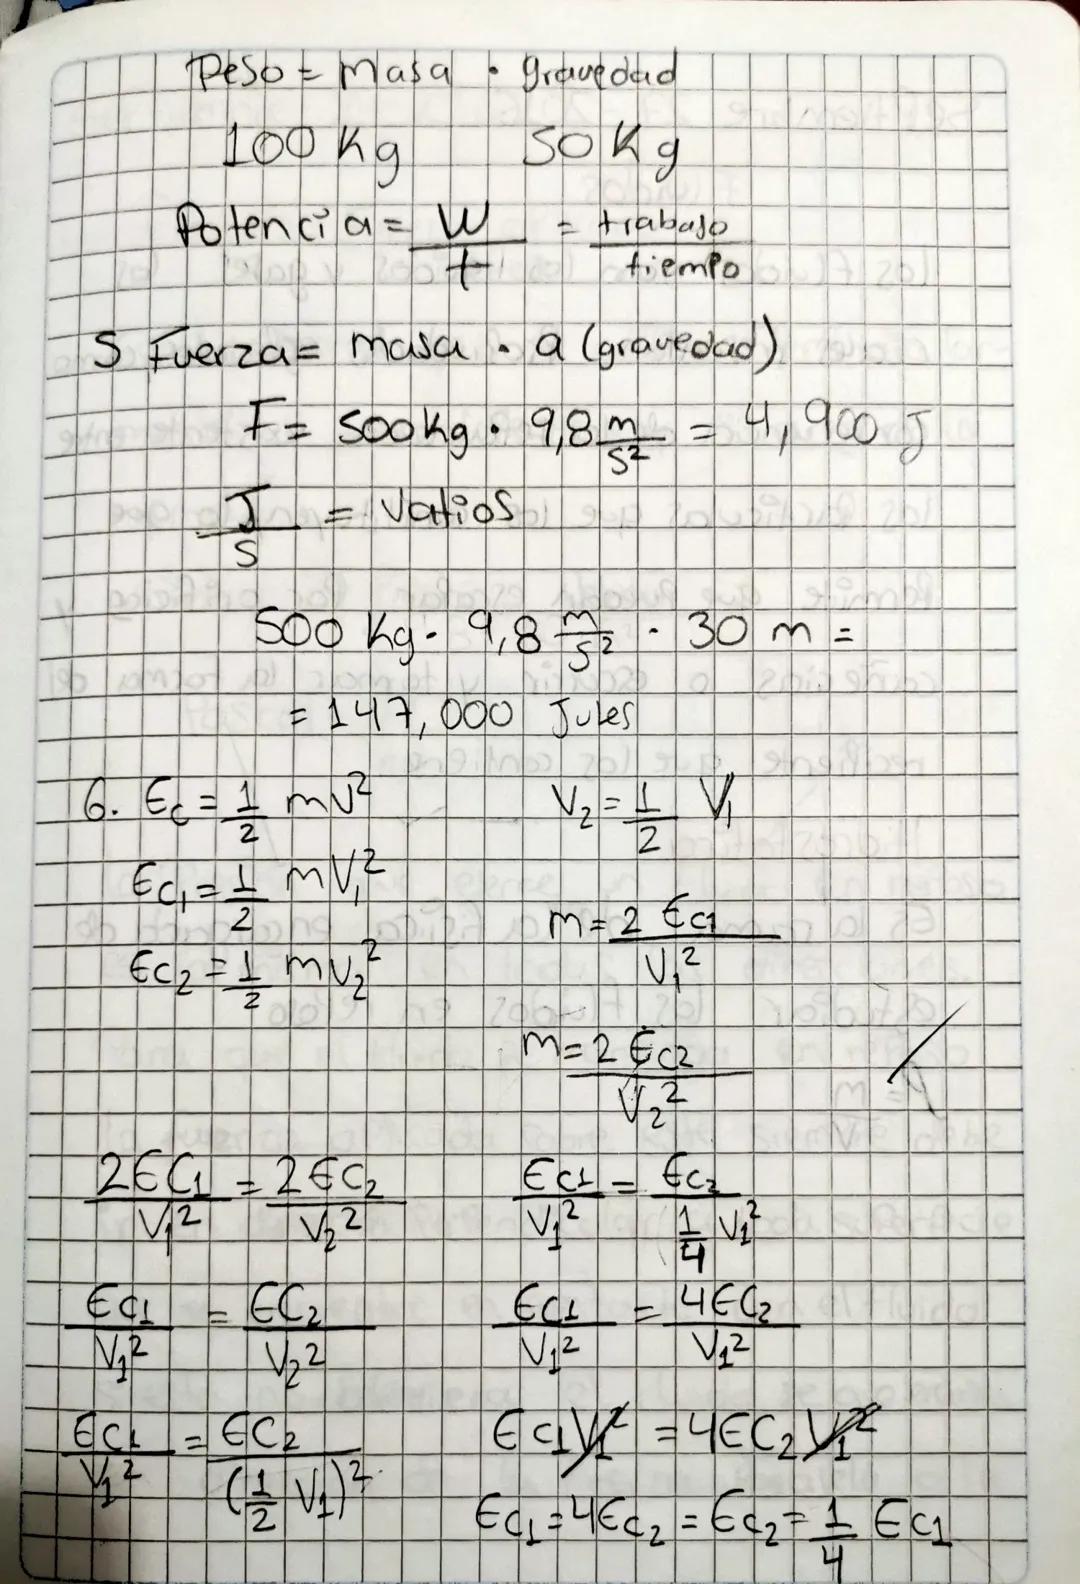 Peso = masa · gravedad
100 Kg    50 Kg
Potencia = W/t = trabajo/tiempo
5 Fuerza = masa · a (gravedad)
F = 500 kg · 9,8 m/s² = 4,900 J
J/s = vatios
500 Kg · 9,8 m/s² · 30 m =
= 147,000 Jules
6. Ec = 1/2 mv²    V₂ = 1/2 V₁
Ec₁ = 1/2 mV₁²
m = 2 Ec1/V₁²
Ec₂ = 1/2 mV₂²
m = 2 Ec2/V₂²
2EC₁/V₁² = 2EC₂/V₂²    Ec1/V₁² = Ec₂/(1/4 V₁²)
Ec1/V₁² = EC₂/V₂²    Ec1/V₁² = 4EC₂/V₁²
Ec1/V₁² = EC₂/(1/2 V₁)²    Ec1V₁² = 4EC₂V₁²
Ec₁ = 4Ec₂ = Ec₂ = 1/4 Ec1